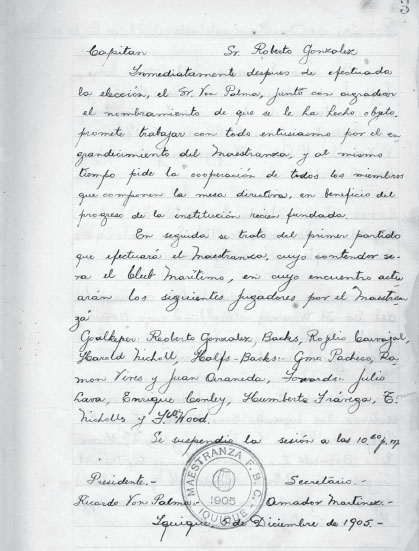 Capitan Sr. Roberto Gonzalez
Inmediatamente despues de efectuada
la elección, el Sr. Von Palma, junto con agradecer
el nombramiento de que se le ha hecho objeto,
promete trabajar con todo entusiasmo por el en
grandecimiento del Maestranza, y al mismo
tiempo pide la cooperación de todos los miembros
que componen la mesa directiva, en beneficio del
progreso de la institución recien fundada.
En seguida se trato del primer partido
que efectuará el Maestranza, cuyo contendor se-
ra el Club Maritimo, en cuyo encuentro actu
arán los siguientes jugadores por el Maestran
za
Goalkeper: Roberto Gonzalez, Backs, Carvajal,
Harold Nicholl, Halfs-Backs:- Gmo Pacheco, Ra
mon Vives y Juan Araneda, Forwards:- Julio
Lava, Enrique Conley, Humberto Frávega, E.
Nicholls y Wood.
Se suspendio la sesión a las 10 p.m.
Presidente.- Secretario.-
Ricardo Von Palma.- Amador Martinez.-
MAESTRANZA F.B.C.
1905
IQUIQUE
Iquique, Diciembre de 1905.-